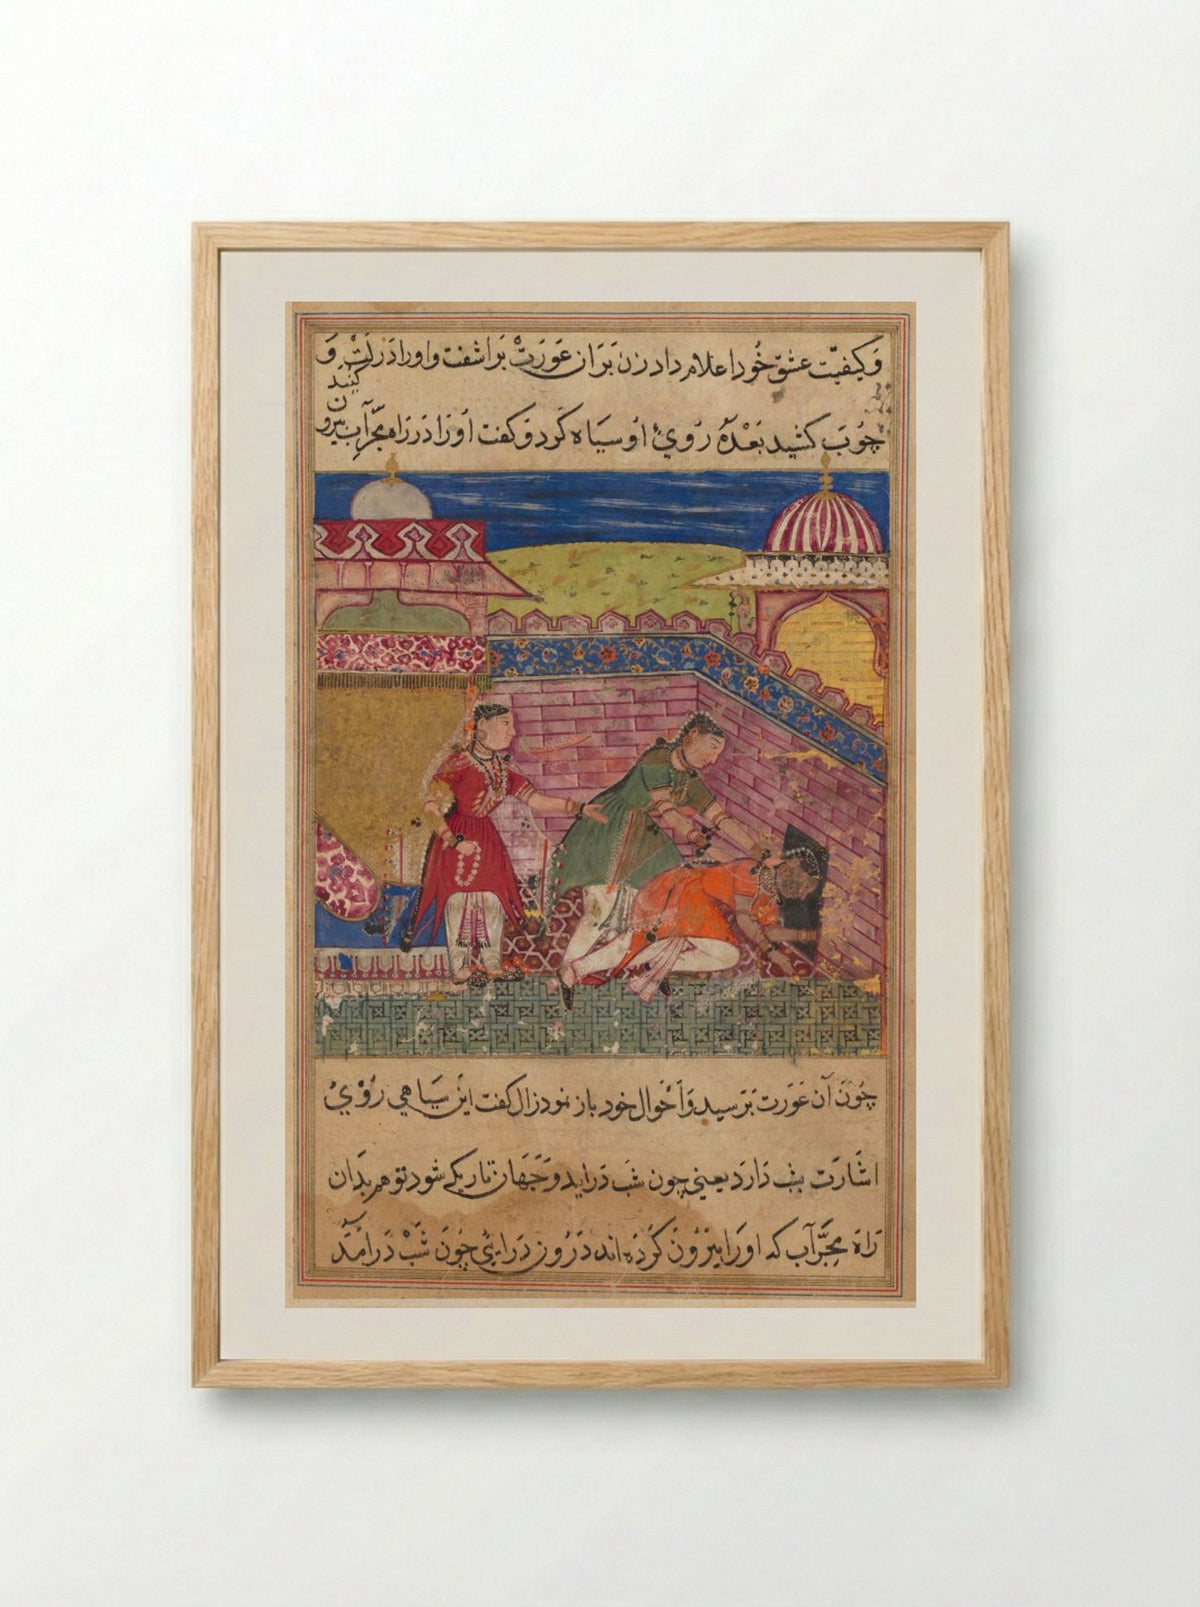 وَ کیفیّت عشق خُود اعلام داد زن بَران عَورَتْ براشفت و اورا در لَتْ وَ
چوُبَ کشید بَعْدَهٗ رُویٔ اوُ سیَاه کرد وَ کفت اوُرا دَر رَاه مجرّ آب بیرون کنند
چُون آن عَوْرَت بَترسید وَ اَحْوال خود باز نمود زال کفت این سیَاهی رُوْیْ
اشَارَت بشب دَارَد یعنی چون شَب دَراید وَ جَهَان تاریک شود تو هم بدَان
رَاه مجرَّ آب که اورا بیرُوَن کَردَه اند دَرُون دَرایی چُون شَبْ دَر آمَد